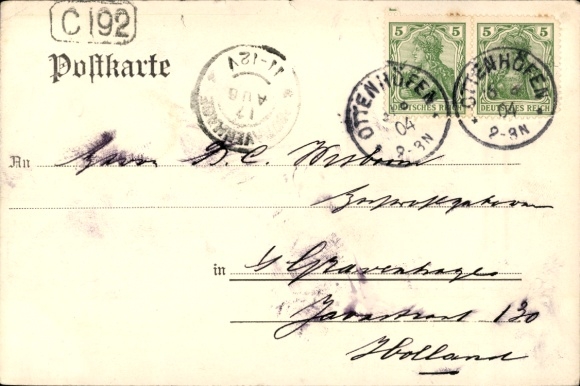 C 192
Postkarte
11-12V
17
AUG
5
5
DEUTSCHES REICH
DEUTSCHES REICH
OTTENHÖFEN
04
2-3N
OTTENHÖFEN
04
2-3N
An Herrn D. C.
in 's Gravenhage
Javastraat 130
Holland